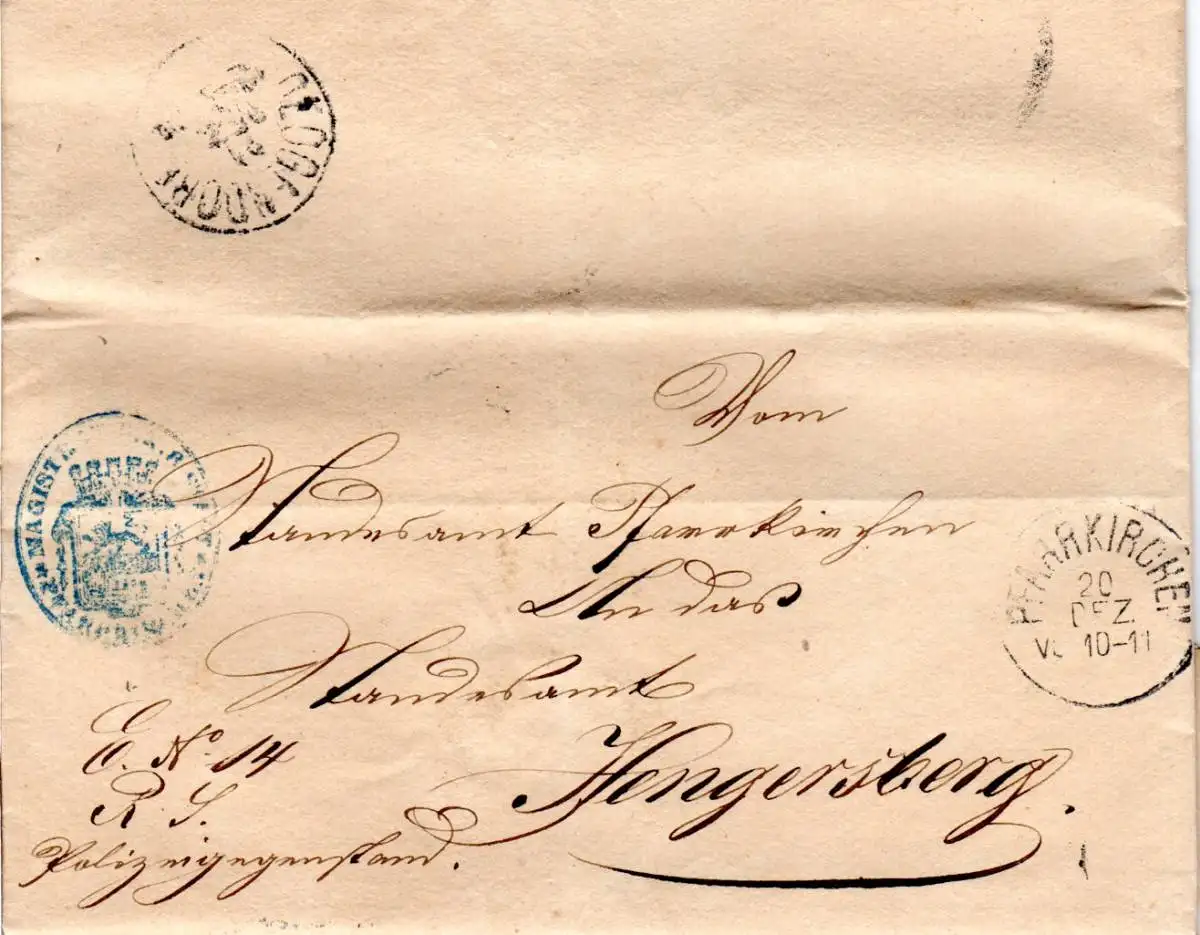 DEGGENDORF
Vom
Standesamt Pfarrkirchen
An das
Standesamt
Hengersberg.
E. No. 14
R. S.
Polizeigegenstand.
PFARRKIRCHEN
20
DEZ.
10-11